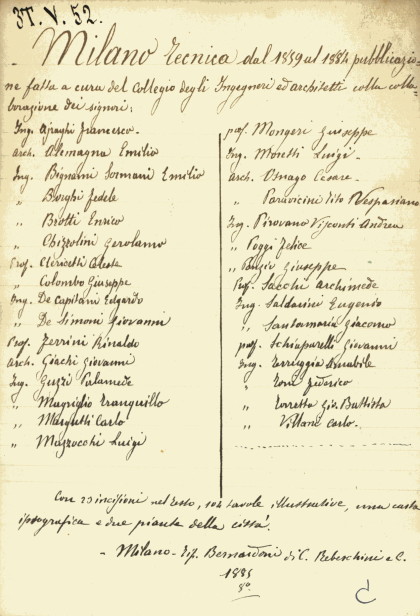 3T. V. 52.
- Milano tecnica dal 1859 al 1884 pubblicazio-
ne fatta a cura del Collegio degli Ingegneri ed architetti colla colla-
borazione dei signori:
Ing. Ajraghi Francesco.
arch. Alemagna Emilio
Ing. Bignami Sormani Emilio
" Borghi Fedele
" Brotti Enrico
" Chizzolini Gerolamo
Prof. Clericetti Celeste
" Colombo Giuseppe
Ing. De Capitani Edgardo
" De Simoni Giovanni
Prof. Ferrini Rinaldo
Arch. Giachi Giovanni
Ing. Guzzi Palamede
" Magriglio Tranquillo
" Margutti Carlo
" Mazzocchi Luigi
prof. Mongeri Giuseppe
Ing. Moretti Luigi -
arch. Osnago Cesare -
" Paravicini Tito Vespasiano
Ing. Pirovano Visconti Andrea
" Poggi Felice
" Giuseppe
Prof. Sacchi Archimede
Ing. Saldarini Eugenio
" Santamaria Giacomo
prof. Schiaparelli Giovanni
Ing. Terruggia Amabile
" Federico
" Torretta Gio. Battista
" Villani Carlo -
Con 23 incisioni nel testo, 104 tavole illustrative, una carta
ipsografica e due piante della città.
- Milano - Tip. Bernardoni di C. Rebeschini e C.
1885
8°